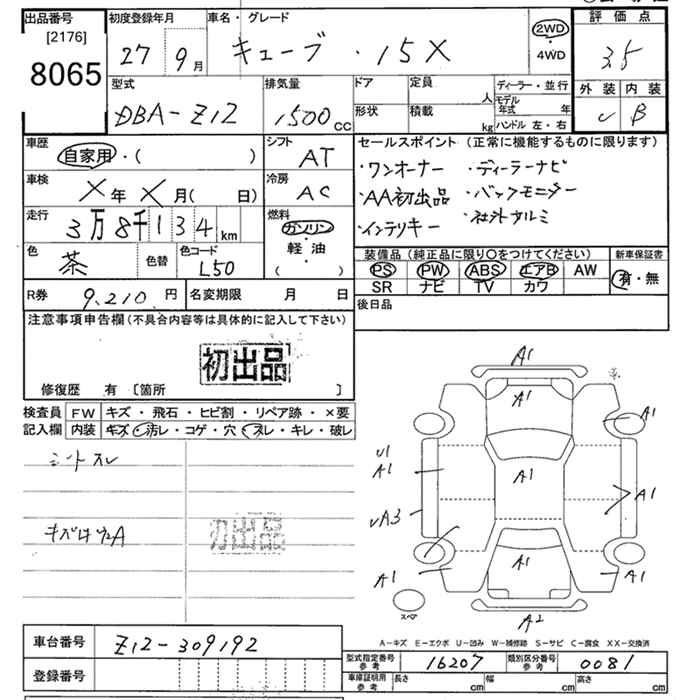 出品番号
[2176]
8065
初度登録年月
27 9月
車名・グレード
キューブ ・ 15X
2WD
4WD
評価点
3.5
外装 内装
B
型式
DBA-Z12
排気量
1500cc
ドア
形状
定員
人
積載
kg
ディーラー・並行
モデル年式 年
ハンドル 左・右
車歴
自家用・( )
シフト
AT
車検
X年X月( 日)
冷房
AC
走行
3万8千134km
燃料
ガソリン
軽・油
( )
色
茶
色替
色コード
L50
R券 9,210円
名変期限 月 日
セールスポイント (正常に機能するものに限ります)
・ワンオーナー ・ディーラーナビ
・AA初出品 ・バックモニター
・インテリキー ・社外アルミ
装備品(純正品に限り○をつけてください)
PS PW ABS エアB AW
SR ナビ TV カワ
新車保証書
有・無
後日品
注意事項申告欄(不具合内容等は具体的に記入して下さい)
初出品
修復歴 有 〔箇所 〕
検査員記入欄
FW キズ・飛石・ヒビ割・リペア跡・×要
内装 キズ・汚レ・コゲ・穴・スレ・キレ・破レ
シートスレ
初出品
A1
A1
A1
U1
A1
A1
A1
A3
A1
A1
A1
A2
スペア
A-キズ E-エクボ U-凹み W-補修跡 S-サビ C-腐食 XX-交換済
車台番号 Z12-309192
登録番号
型式指定番号 参考 16207
類別区分番号 参考 0081
車庫証明用 参考
長さ cm
幅 cm
高さ cm